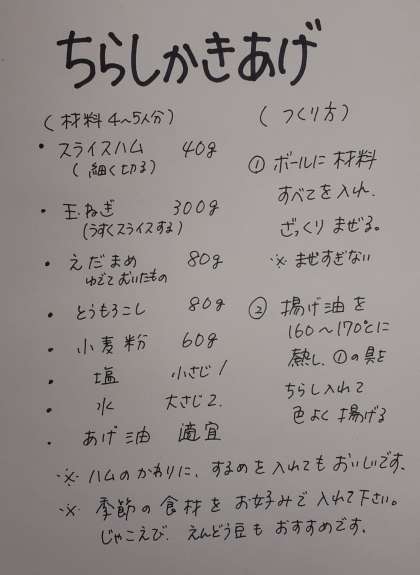 ちらしかきあげ
(材料 4～5人分)
・スライスハム 40g
(細く切る)
・玉ねぎ 300g
(うすくスライスする)
・えだまめ 80g
ゆでておいたもの
・とうもろこし 80g
・小麦粉 60g
・塩 小さじ1
・水 大さじ2.
・あげ油 適宜
(つくり方)
① ボールに材料
すべてを入れ.
ざっくりまぜる。
※まぜすぎない
② 揚げ油を
160～170℃に
熱し、①の具を
ちらし入れて
色よく揚げる
※ハムのかわりに、するめを入れてもおいしいです.
※季節の食材をお好みで入れて下さい。
じゃこえび. えんどう豆もおすすめです.